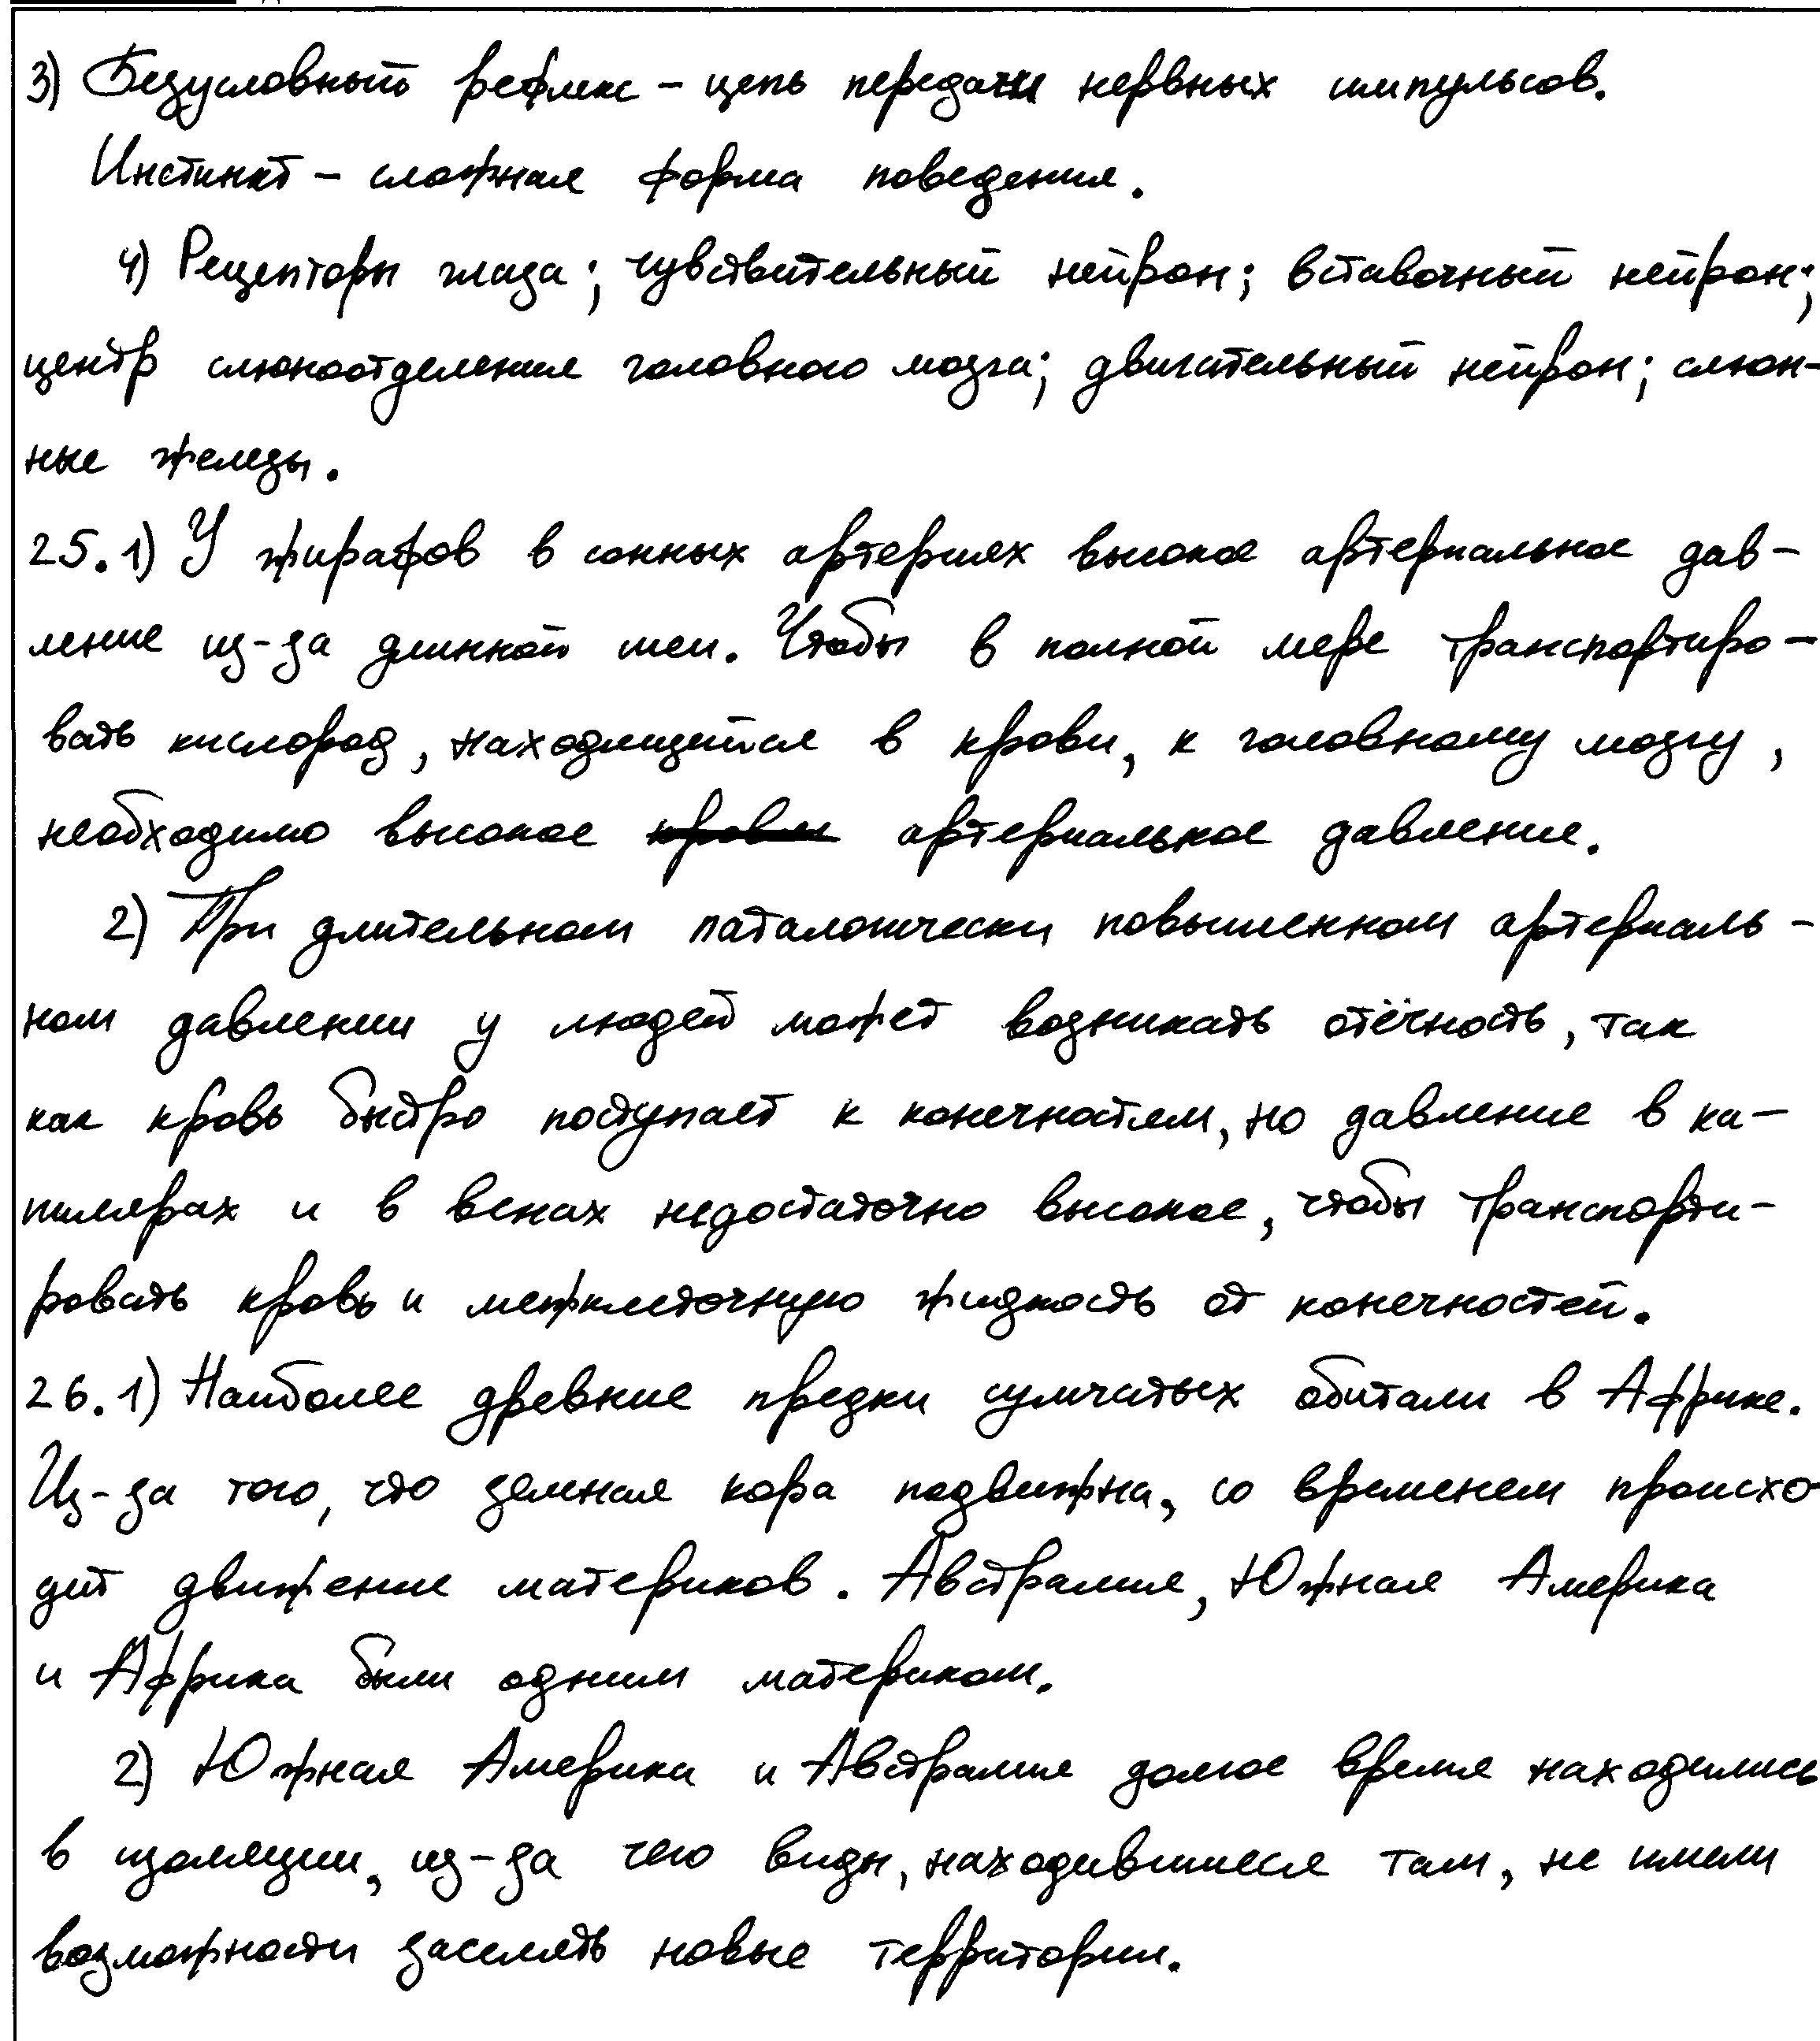 3) Безусловный рефлекс – цепь передачи нервных импульсов.
Инстинкт – сложная форма поведения.
4) Рецепторы глаза; чувствительный нейрон; вставочный нейрон;
центр слюноотделения головного мозга; двигательный нейрон; слюн-
ные железы.
25. 1) У жирафов в сонных артериях высокое артериальное дав-
ление из-за длинной шеи. Чтобы в полной мере транспортиро-
вать кислород, находящийся в крови, к головному мозгу,
необходимо высокое крови артериальное давление.
2) При длительном паталогически повышенном артериаль-
ном давлении у людей может возникать отёчность, так
как кровь быстро поступает к конечностям, но давление в ка-
пиллярах и в венах недостаточно высокое, чтобы транспорти-
ровать кровь и межклеточную жидкость от конечностей.
26. 1) Наиболее древние предки сумчатых обитали в Африке.
Из-за того, что земная кора подвижна, со временем происхо
дит движение материков. Австралия, Южная Америка
и Африка были одним материком.
2) Южная Америка и Австралия долгое время находились
в изоляции, из-за чего виды, находившиеся там, не имели
возможности заселять новые территории.